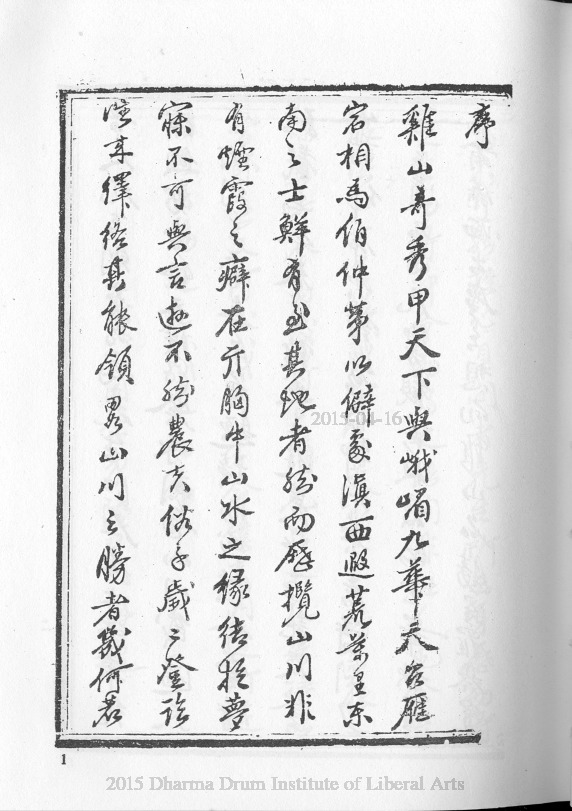 序
雞山奇秀甲天下與峨嵋九華天台雁
宕相為伯仲第以僻處滇西遐荒萬里東
南之士鮮有至其地者然而歷攬山川非
有煙霞之癖在于胸中山水之緣結於夢
寐不可與言遊不然農夫俗子歲歲登臨
往來繹絡其能領畧山川之勝者幾何哉
2015-04-16
1
2015 Dharma Drum Institute of Liberal Arts